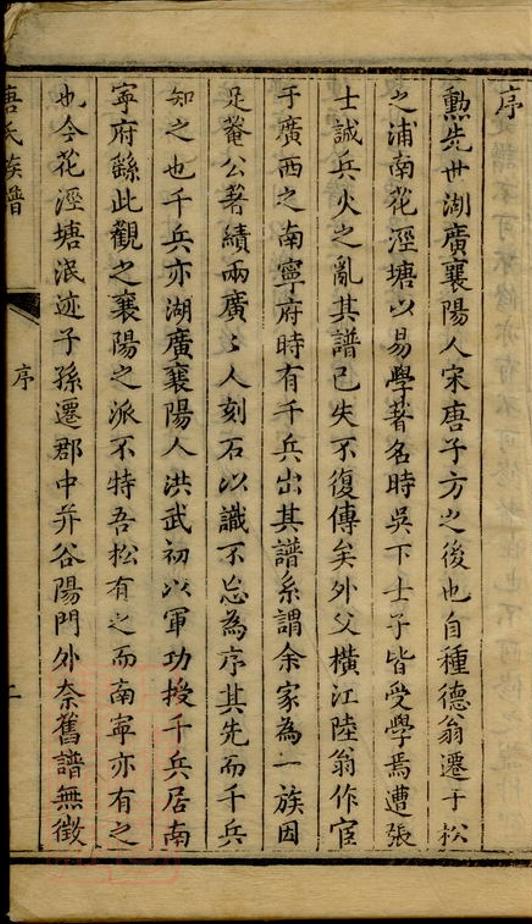 序
勲先世湖廣襄陽人宋唐子方之後也自種德翁遷于松
之浦南花涇塘以易學著名時吳下士子皆受學焉遭張
士誠兵火之亂其譜已失不復傳矣外父橫江陸翁作宦
于廣西之南寧府時有千兵出其譜系謂余家為一族因
足菴公著績兩廣〻人刻石以識不忘為序其先而千兵
知之也千兵亦湖廣襄陽人洪武初以軍功授千兵居南
寧府繇此觀之襄陽之派不特吾松有之而南寧亦有之
也今花涇塘泯迹子孫遷郡中并谷陽門外奈舊譜無徵
唐氏族譜
序
二